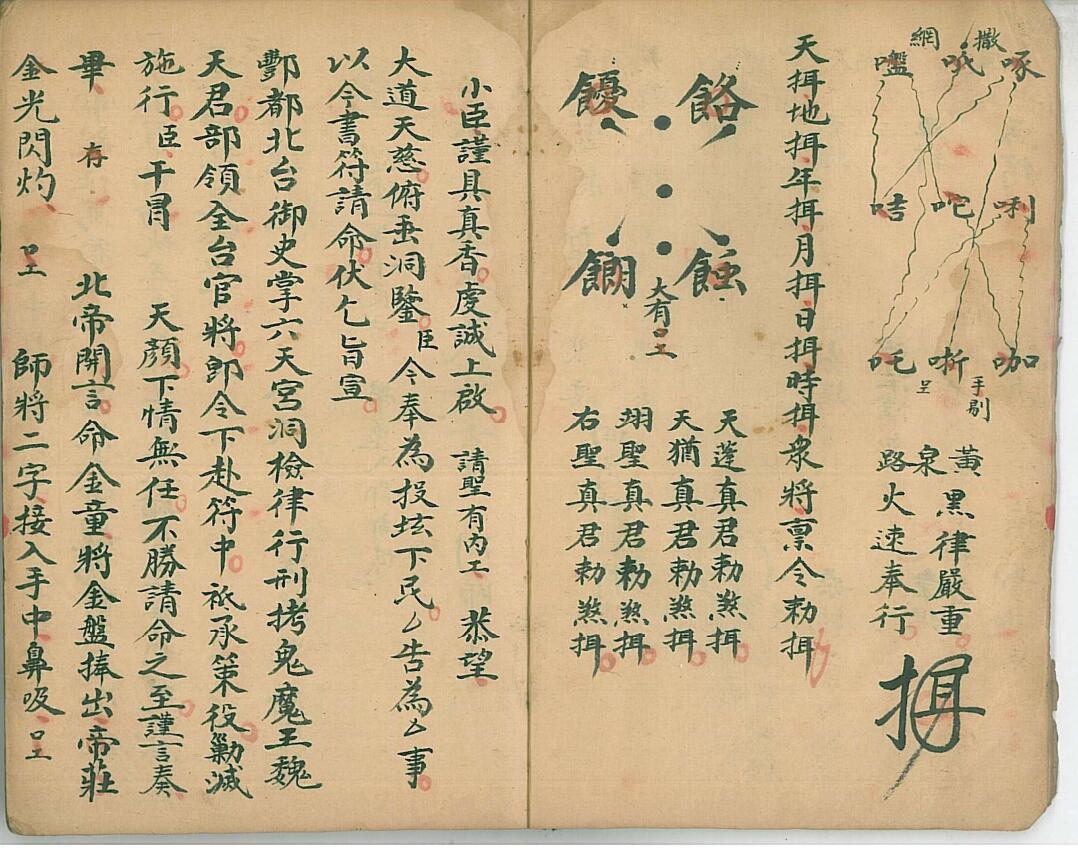 撒網
啄 㕽 嚂
唎 咜 咭
咖 唽 吒
手剔
呈
黃泉路
黑律嚴重
火速奉行
揖
天揖地揖年揖月揖日揖時揖衆將禀令勅揖
大有
天蓬真君勅煞揖
天猶真君勅煞揖
翊聖真君勅煞揖
右聖真君勅煞揖
小臣謹具真香虔誠上啟 請聖有內工 恭望
大道天慈俯垂洞鑒臣今奉為投坛下民厶告為厶事
以今書符請命伏乞旨宣
酆都北台御史掌六天宮洞檢律行刑拷鬼魔王魏
天君部領全台官將即令下赴符中祗承策役勦滅
施行臣干冒 天顏下情無任不勝請命之至謹言奏
畢存 北帝開言命金童將金盤捧出帝莊
金光閃灼 口工 師將二字接入手中鼻吸口工